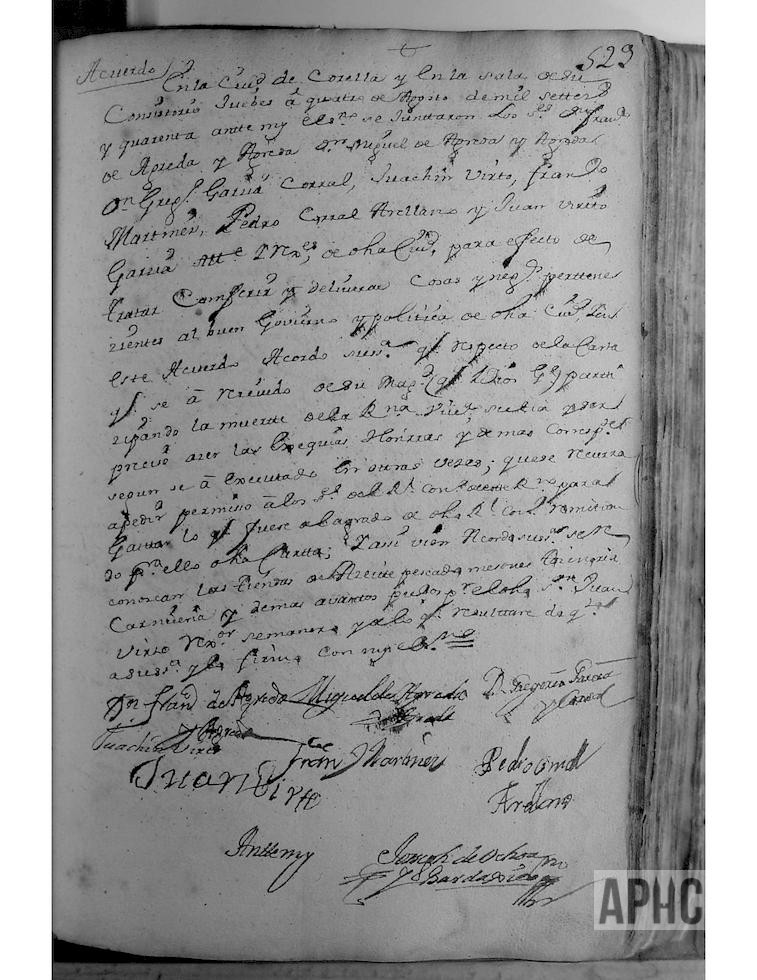 529
Acuerdo
En la Ciud de Corella y en la sala de su
Consistorio Juebes â quatro de Agosto de mil setteᵒˢ
y quarenta ante my el sno se Junttaron los Srs Dn franᶜᵒ
de Agreda y Agreda Dn Miguel de Agreda y Agreda
Dn Gregᵒ Garcia Corral, Juachin Virto, franᶜᵒ
Martinez, Pedro Corral Arellano y Juan virtto
Garcia Attᵉ y Rexᵉˢ, de dha Ciud, para efecto de
tratar Comferir y deliverar Cosas y negᵒˢ pertene
zientes al buen Govierno y politica de dha Ciud, y en
este Acuerdo Acordo susria qᵉ respecto de la Carta
qᵉ se â Receuido de su Magd (qᵉ Dios Gᵉ) parttí
zipando la muertte de la Rna Viuda y ser
preciso azer las Exequias Honrras y demas correspᵗᵉˢ
segun se â executtado en otras vezes; que se recurra
apedir permisso â los Srs del Rl Consº de este Rno para
Gastar lo qᵉ fuere del agrado de dho Rl Consº remitien
do pra ello dha Cartta; y assi vien Acordo susria se re
conozcan las tiendas de Azeite pescado mesones
Carnizeria y demas avastos puᵒˢ pr el dho Sr Juan
Virto Rexᵒʳ semanero y de lo qᵉ resulttare de qᵗᵃ
a susria y lo firmo con my el sno
Dn franᶜᵒ de Agreda Miguel de Agreda D. Gregorio Garcia
y Agreda y Agreda y Corral
Juachin Virto
franᶜᵒ Martinez Pedro Corral
Juan Virtto Arellano
Anttemy Joseph de Ochoa
y Bardaxi sno
APHC